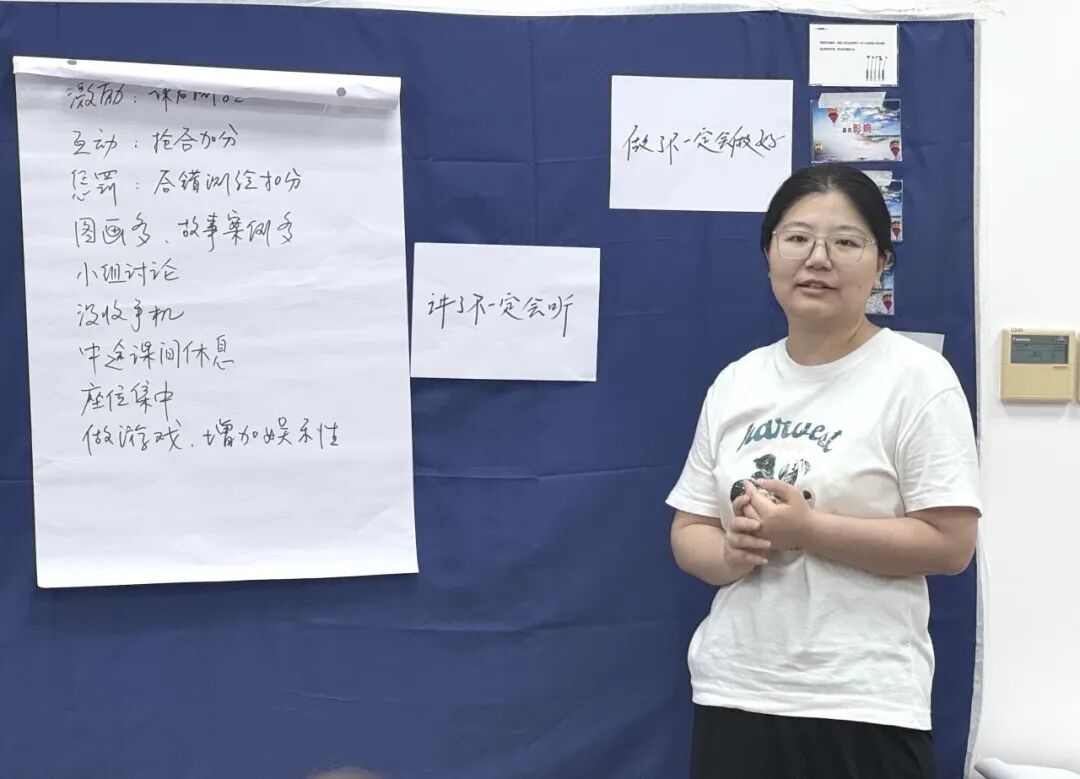 激励：课后测记
互动：抢答加分
惩罚：答错测验扣分
图画多、故事案例多
小组讨论
没收手机
中途课间休息
座位集中
做游戏、增加娱乐性
讲了不一定会听
做了不一定会做好
赢在影响
harvest